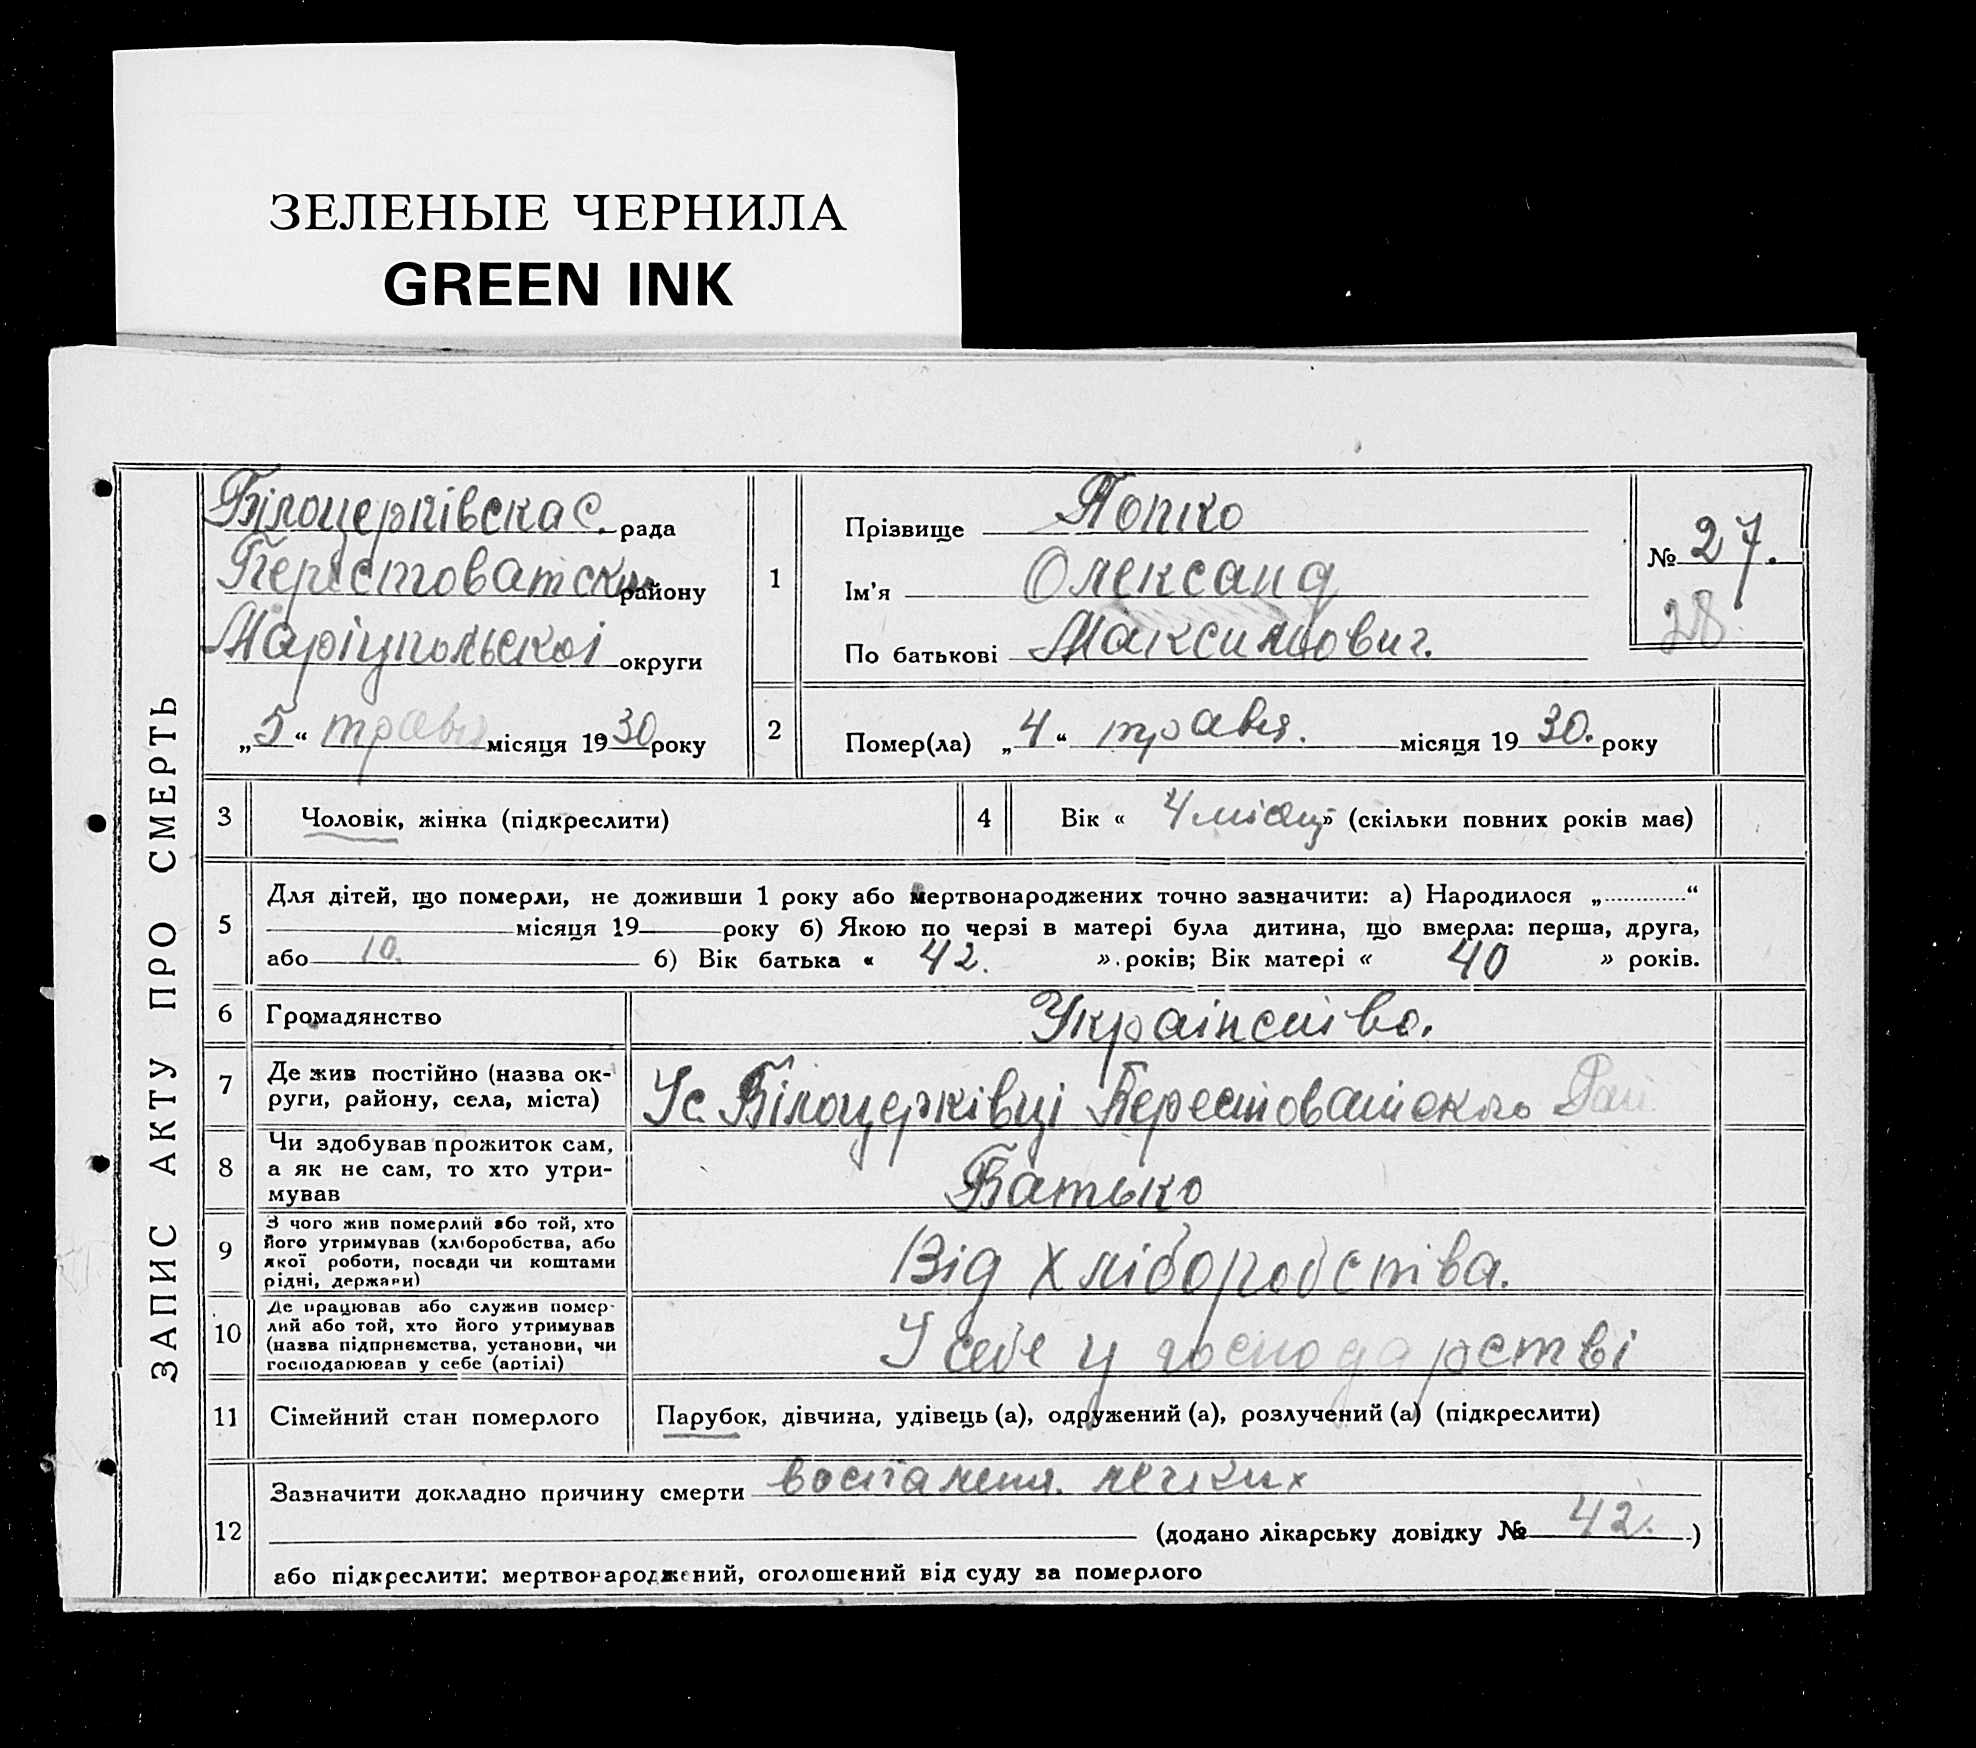 ЗЕЛЕНЫЕ ЧЕРНИЛА
GREEN INK
ЗАПИС АКТУ ПРО СМЕРТЬ
Білоцерківска с. рада
Берестоватськ району
Маріупольскоі округи
„5“ травня місяця 1930 року
1
Прізвище Попко
Ім'я Олександ
По батькові Максимович.
№ 27.
28
2 Помер(ла) „4“ травня. місяця 1930. року
3 Чоловік, жінка (підкреслити)
4 Вік « 4 місяц » (скільки повних років має)
5
Для дітей, що померли, не доживши 1 року або мертвонароджених точно зазначити: а) Народилося „............“
місяця 19 року б) Якою по черзі в матері була дитина, що вмерла: перша, друга,
або 10. б) Вік батька « 42. ». років; Вік матері « 40 » років.
6 Громадянство Українство.
7 Де жив постійно (назва ок-
руги, району, села, міста) У с. Білоцерківці Берестоватского Рай
8 Чи здобував прожиток сам,
а як не сам, то хто утри-
мував Батько
9 З чого жив померлий або той, хто
його утримував (хліборобства, або
якої роботи, посади чи коштами
рідні, держави) Від хліборобства.
10 Де працював або служив помер-
лий або той, хто його утримував
(назва підприємства, установи, чи
господарював у себе (артілі) У себе у господарстві
11 Сімейний стан померлого Парубок, дівчина, удівець (а), одружений (а), розлучений (а) (підкреслити)
12
Зазначити докладно причину смерти воспаления. легких
(додано лікарську довідку № 42. .)
або підкреслити: мертвонароджений, оголошений від суду за померлого